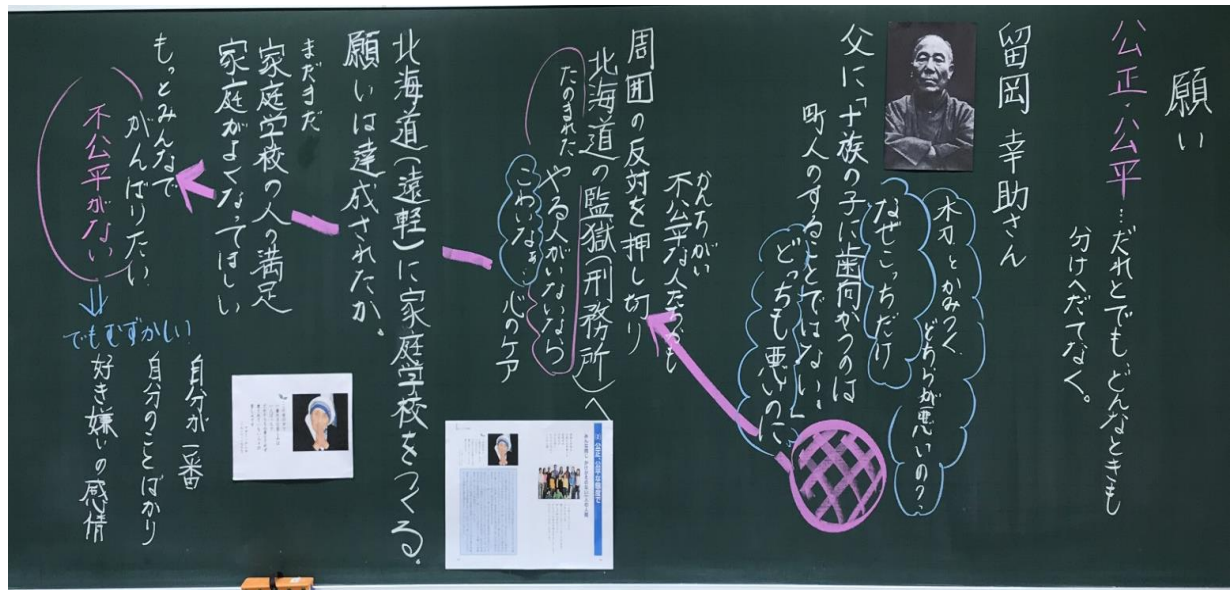 願い
公正・公平…だれとでも、どんなときも
分けへだてなく。
留岡 幸助さん
木刀とかみつく
どちらが悪いの?
なぜこっちだけ
父に「士族の子に歯向かうのは
町人のすることではない。」
どっちも悪いのに
かんちがい
不公平な人たちも
周囲の反対を押し切り
北海道の監獄(刑務所)へ
たのまれた
やる人がいないなら
こわいなぁ…
心のケア
北海道(遠軽)に家庭学校をつくる。
願いは達成されたか。
まだまだ
家庭学校の人の満足
家庭がよくなってほしい
もっとみんなで
がんばりたい
不公平がない
でもむずかしい
自分が一番
自分のことばかり
好き嫌いの感情